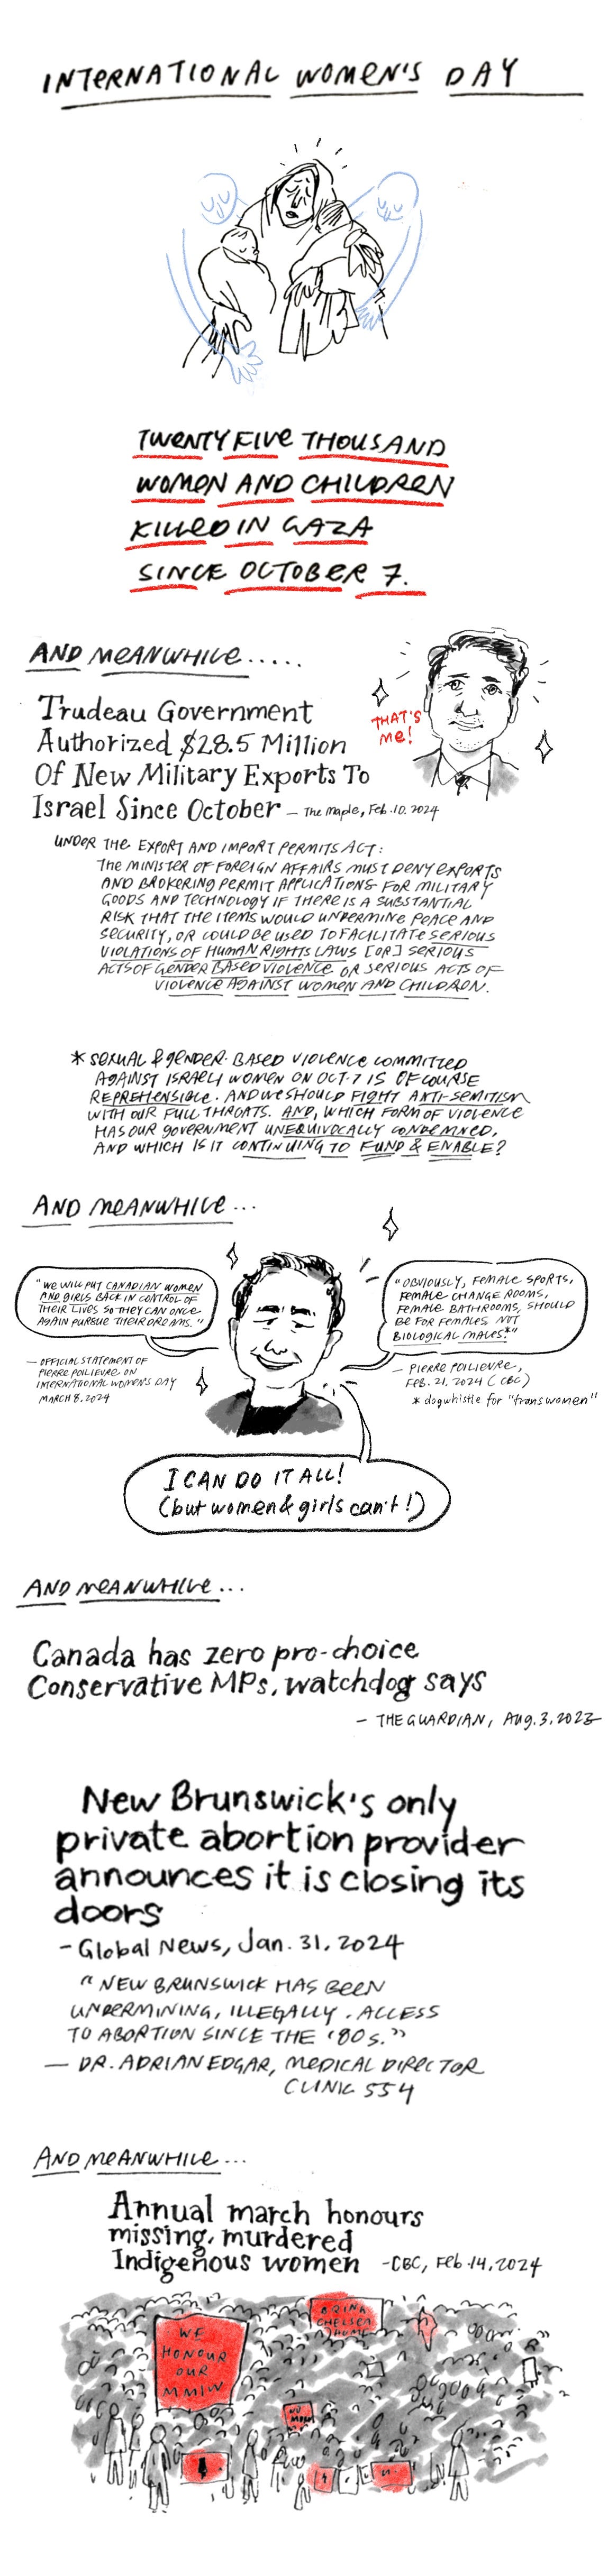 INTERNATIONAL WOMEN'S DAY
TWENTY FIVE THOUSAND
WOMEN AND CHILDREN
KILLED IN GAZA
SINCE OCTOBER 7.
AND MEANWHILE.....
Trudeau Government
Authorized $28.5 Million
Of New Military Exports To
Israel Since October - The Maple, Feb. 10. 2024
THAT'S
ME!
UNDER THE EXPORT AND IMPORT PERMITS ACT:
THE MINISTER OF FOREIGN AFFAIRS MUST DENY EXPORTS
AND BROKERING PERMIT APPLICATIONS FOR MILITARY
GOODS AND TECHNOLOGY IF THERE IS A SUBSTANTIAL
RISK THAT THE ITEMS WOULD UNDERMINE PEACE AND
SECURITY, OR COULD BE USED TO FACILITATE SERIOUS
VIOLATIONS OF HUMAN RIGHTS LAWS [OR] SERIOUS
ACTS OF GENDER BASED VIOLENCE OR SERIOUS ACTS OF
VIOLENCE AGAINST WOMEN AND CHILDREN.
* SEXUAL & GENDER-BASED VIOLENCE COMMITTED
AGAINST ISRAELI WOMEN ON OCT. 7 IS OF COURSE
REPREHENSIBLE. AND WE SHOULD FIGHT ANTI-SEMITISM
WITH OUR FULL THROATS. AND, WHICH FORM OF VIOLENCE
HAS OUR GOVERNMENT UNEQUIVOCALLY CONDEMNED,
AND WHICH IS IT CONTINUING TO FUND & ENABLE?
AND MEANWHILE...
"WE WILL PUT CANADIAN WOMEN
AND GIRLS BACK IN CONTROL OF
THEIR LIVES SO THEY CAN ONCE
AGAIN PURSUE THEIR DREAMS."
- OFFICIAL STATEMENT OF
PIERRE POILIEVRE ON
INTERNATIONAL WOMEN'S DAY
MARCH 8, 2024
"OBVIOUSLY, FEMALE SPORTS,
FEMALE CHANGE ROOMS,
FEMALE BATHROOMS, SHOULD
BE FOR FEMALES NOT
BIOLOGICAL MALES*"
- PIERRE POILIEVRE,
FEB. 21, 2024 (CBC)
* dogwhistle for "trans women"
I CAN DO IT ALL!
(but women & girls can't!)
AND MEANWHILE...
Canada has zero pro-choice
Conservative MPs, watchdog says
- THE GUARDIAN, Aug. 3, 2023
New Brunswick's only
private abortion provider
announces it is closing its
doors
- Global News, Jan. 31, 2024
"NEW BRUNSWICK HAS BEEN
UNDERMINING, ILLEGALLY, ACCESS
TO ABORTION SINCE THE '80s."
- DR. ADRIAN EDGAR, MEDICAL DIRECTOR
CLINIC 554
AND MEANWHILE...
Annual march honours
missing, murdered
Indigenous women - CBC, Feb. 14, 2024
BRING
CHELSEA
HOME
WE
HONOUR
OUR
MMIW
NO
MORE